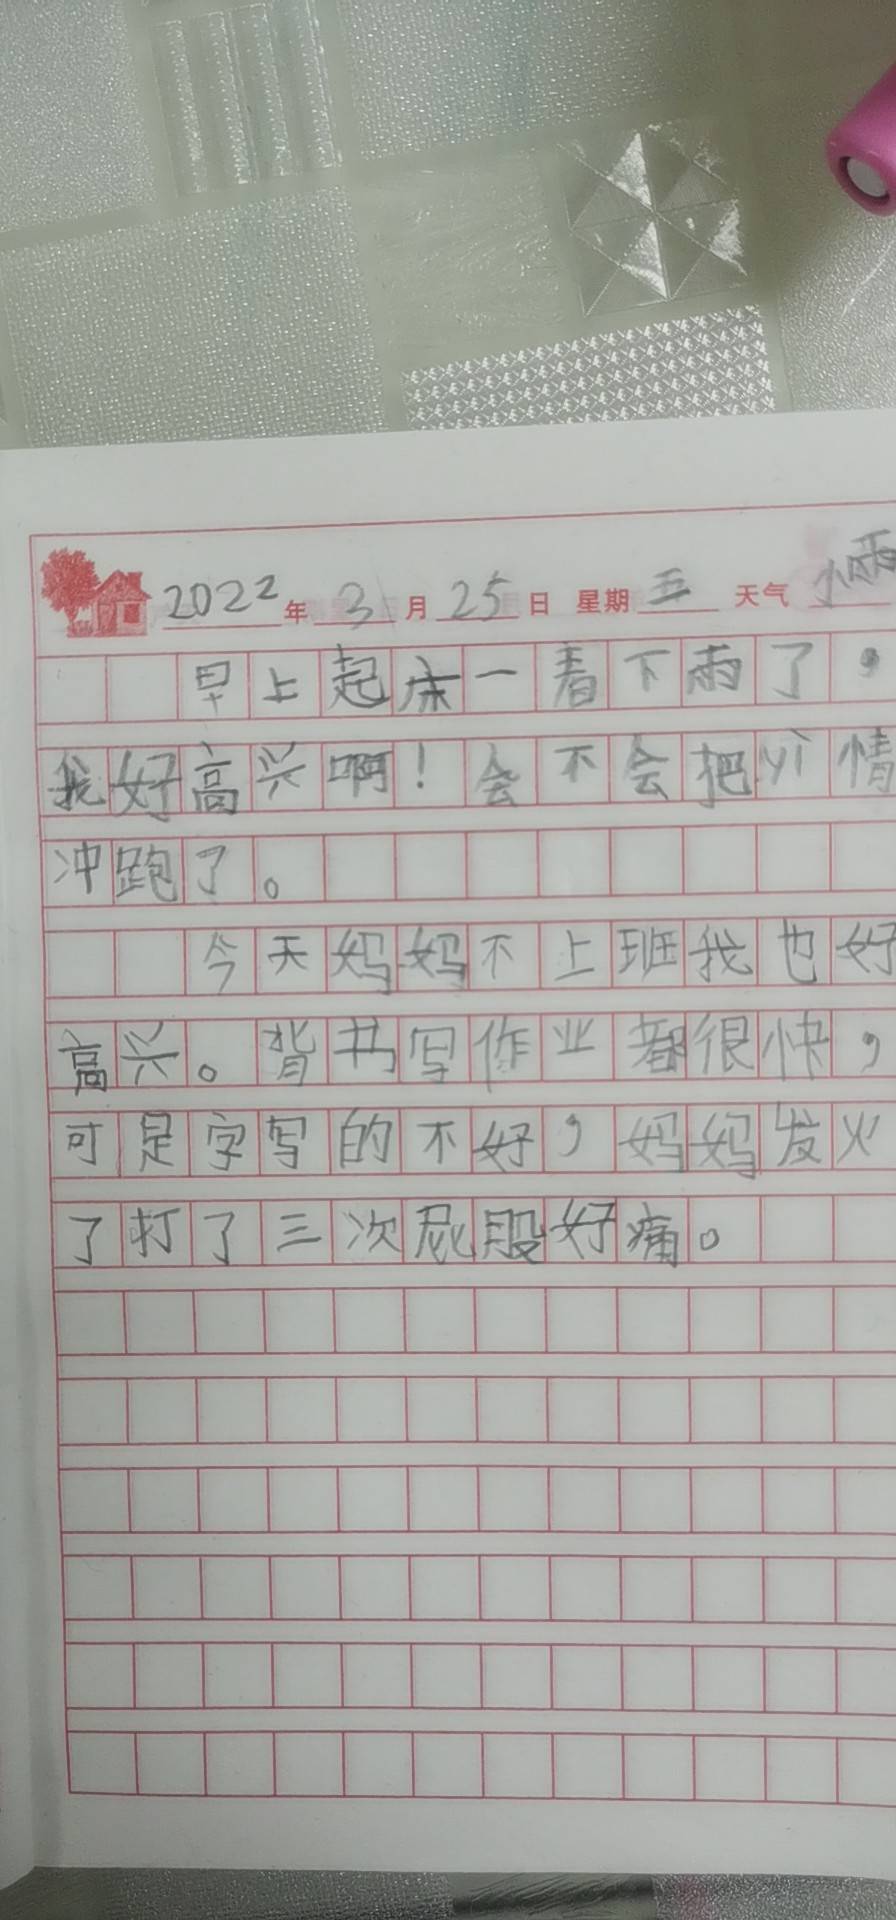 2022年3月25日 星期五 天气 小雨
早上起床一看下雨了，
我好高兴啊！会不会把yì情
冲跑了。
今天妈妈不上班我也好
高兴。背书写作业都很快，
可是字写的不好，妈妈发火
了打了三次屁股好痛。